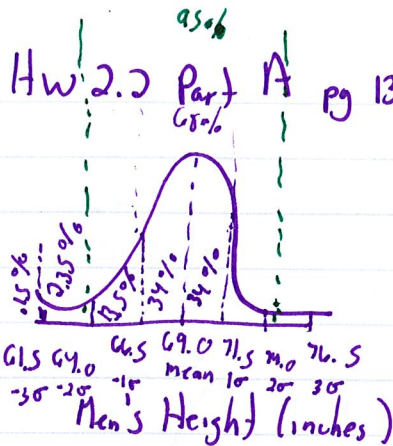 95%
HW 2.2 Part A pg 13
68%
.15% 2.35% 13.5% 34% 34%
61.5 64.0 66.5 69.0 71.5 74.0 76.5
-3σ -2σ -1σ mean 1σ 2σ 3σ
Men's Height (inches)